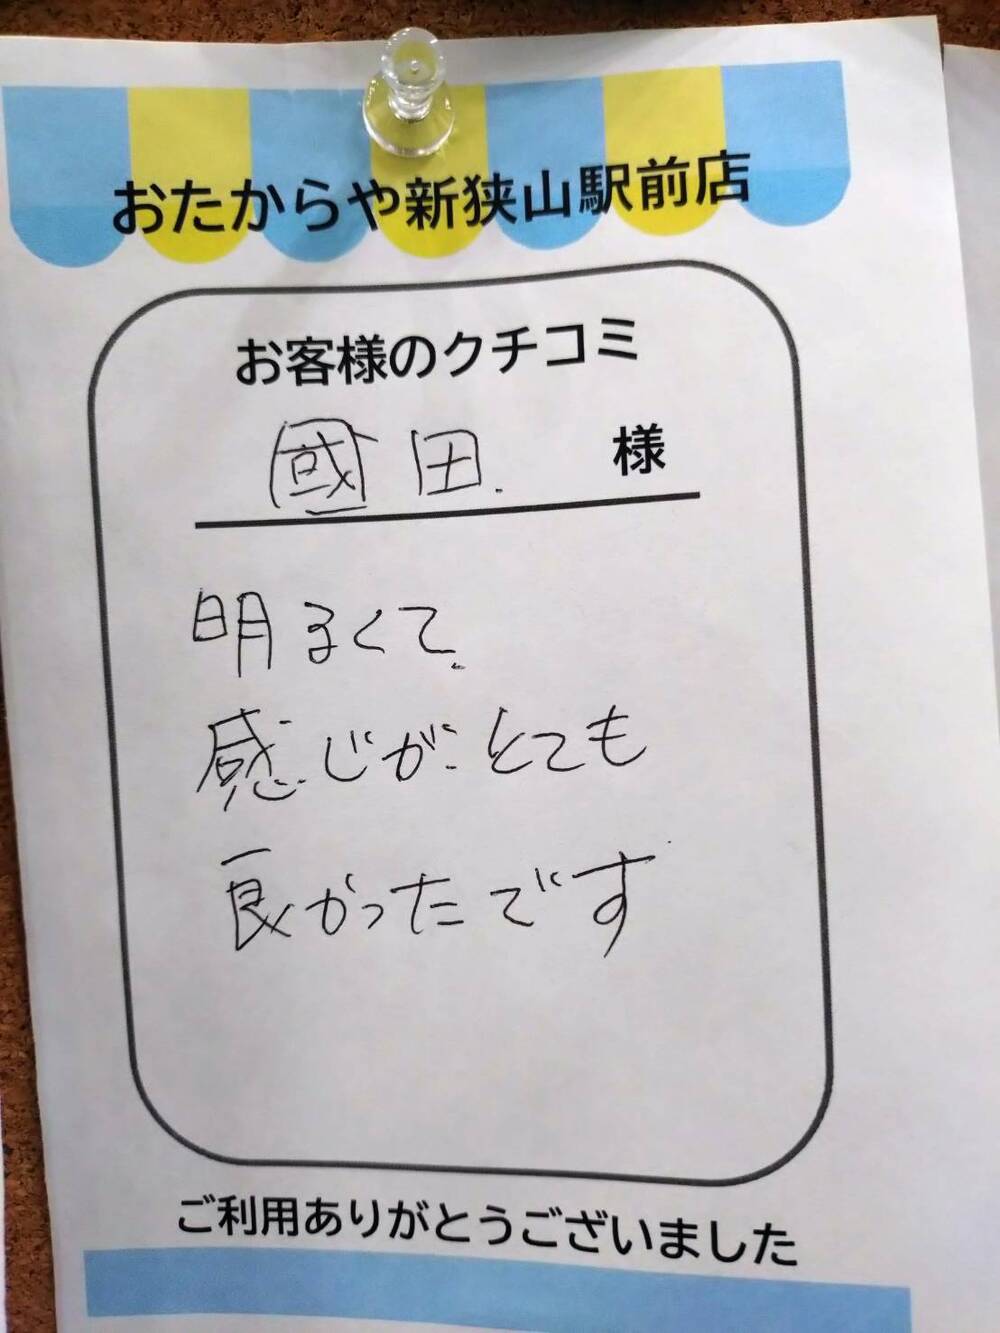 おたからや新狭山駅前店
お客様のクチコミ
國田 様
明るくて
感じがとても
良かったです
ご利用ありがとうございました